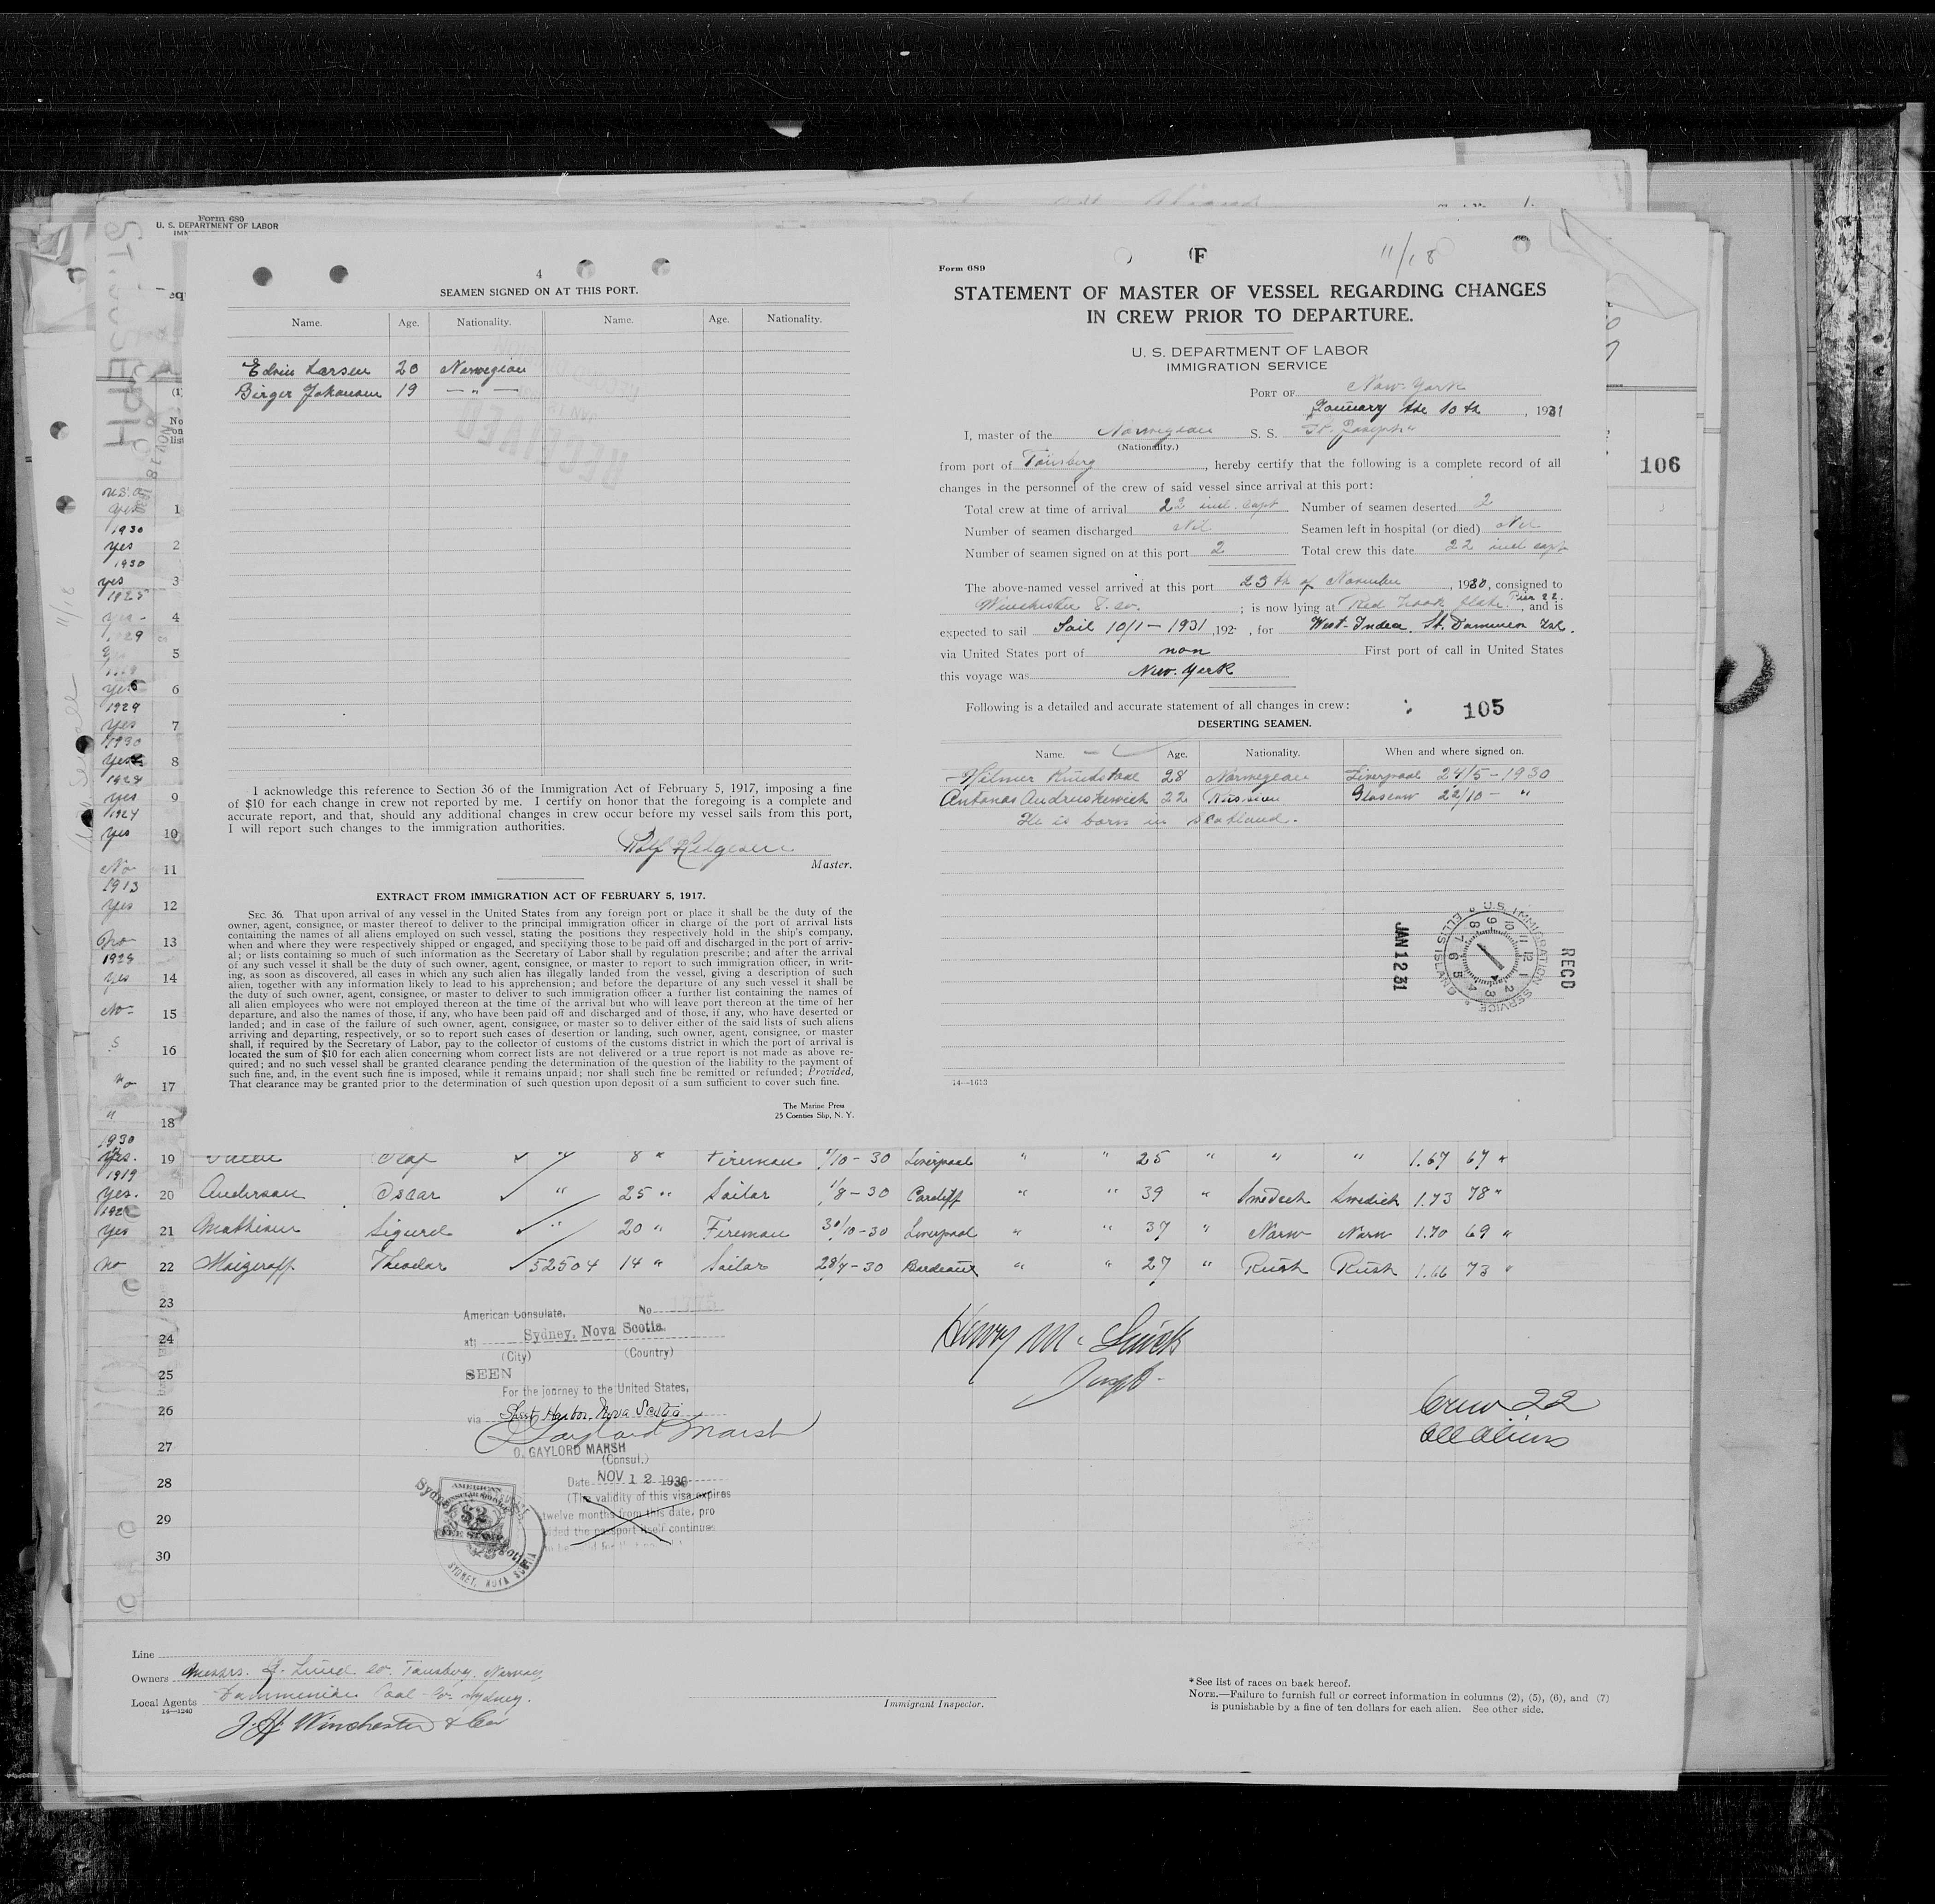 Form 689
U. S. DEPARTMENT OF LABOR
4
SEAMEN SIGNED ON AT THIS PORT.
Name. Age. Nationality. Name. Age. Nationality.
Edvin Larsen 20 Norwegian
Birger Johansen 19 — " —
RECEIVED
I acknowledge this reference to Section 36 of the Immigration Act of February 5, 1917, imposing a fine
of $10 for each change in crew not reported by me. I certify on honor that the foregoing is a complete and
accurate report, and that, should any additional changes in crew occur before my vessel sails from this port,
I will report such changes to the immigration authorities.
Rolf Helgesen
Master.
EXTRACT FROM IMMIGRATION ACT OF FEBRUARY 5, 1917.
SEC. 36. That upon arrival of any vessel in the United States from any foreign port or place it shall be the duty of the
owner, agent, consignee, or master thereof to deliver to the principal immigration officer in charge of the port of arrival lists
containing the names of all aliens employed on such vessel, stating the positions they respectively hold in the ship's company,
when and where they were respectively shipped or engaged, and specifying those to be paid off and discharged in the port of arriv-
al; or lists containing so much of such information as the Secretary of Labor shall by regulation prescribe; and after the arrival
of any such vessel it shall be the duty of such owner, agent, consignee, or master to report to such immigration officer, in writ-
ing, as soon as discovered, all cases in which any such alien has illegally landed from the vessel, giving a description of such
alien, together with any information likely to lead to his apprehension; and before the departure of any such vessel it shall be
the duty of such owner, agent, consignee, or master to deliver to such immigration officer a further list containing the names of
all alien employees who were not employed thereon at the time of the arrival but who will leave port thereon at the time of her
departure, and also the names of those, if any, who have been paid off and discharged and of those, if any, who have deserted or
landed; and in case of the failure of such owner, agent, consignee, or master so to deliver either of the said lists of such aliens
arriving and departing, respectively, or so to report such cases of desertion or landing, such owner, agent, consignee, or master
shall, if required by the Secretary of Labor, pay to the collector of customs of the customs district in which the port of arrival is
located the sum of $10 for each alien concerning whom correct lists are not delivered or a true report is not made as above re-
quired; and no such vessel shall be granted clearance pending the determination of the question of the liability to the payment of
such fine, and, in the event such fine is imposed, while it remains unpaid; nor shall such fine be remitted or refunded; Provided,
That clearance may be granted prior to the determination of such question upon deposit of a sum sufficient to cover such fine.
The Marine Press
25 Coenties Slip, N. Y.
F 11/18
Form 689
STATEMENT OF MASTER OF VESSEL REGARDING CHANGES
IN CREW PRIOR TO DEPARTURE.
U. S. DEPARTMENT OF LABOR
IMMIGRATION SERVICE
PORT OF New-York
January the 10th, 1931
I, master of the Norwegian S. S. St. Joseph
(Nationality.)
from port of Tönsberg, hereby certify that the following is a complete record of all
changes in the personnel of the crew of said vessel since arrival at this port:
Total crew at time of arrival 22 incl. capt Number of seamen deserted 2
Number of seamen discharged Nil Seamen left in hospital (or died) Nil
Number of seamen signed on at this port 2 Total crew this date 22 incl capt
The above-named vessel arrived at this port 23th of November, 1930, consigned to
Winchester & co.; is now lying at Red Hook flats. Pier 22., and is
expected to sail Sail 10/1 — 1931, 192 , for West-Indea. St. Domingo
via United States port of non First port of call in United States
this voyage was New-York
Following is a detailed and accurate statement of all changes in crew: 105
DESERTING SEAMEN.
Name. Age. Nationality. When and where signed on.
Hilmer Knudstad 28 Norwegian Liverpool 24/5 — 1930
Antonas Andruskewich 22 Russian Glascow 22/10 — "
He is born in Scotland.
U.S. IMMIGRATION SERVICE ELLIS ISLAND
RECD JAN 12 31
14—1613
106
19 Olaf " 8 " Fireman 1/10 - 30 Liverpool " " 25 " " " 1.67 67 "
20 Anderson Oscar " 25 " Sailor 1/8 - 30 Cardiff " " 39 " Swedish Swedish 1.73 78 "
21 Mathisen Sigurd " 20 " Fireman 30/10 - 30 Liverpool " " 37 " Norw Norw 1.70 69 "
22 Maigeroff Theodor 52504 14 " Sailor 28/4 - 30 Bordeaux " " 27 " Russ Russ 1.66 73 "
23
24
25
26
27
28
29
30
American Consulate, No
at: Sydney, Nova Scotia
(City) (Country)
SEEN
For the journey to the United States,
via Sheet Harbor, Nova Scotia
O. Gaylord Marsh
O. GAYLORD MARSH
(Consul.)
Date NOV 12 1930
(The validity of this visa expires
twelve months from this date, pro
vided the passport itself continues
SYDNEY, NOVA SCOTIA
Crew 22
all aliens
Line
Owners Messrs. Lund co. Tönsberg. Norway
Local Agents Dominion Coal Co. Sydney.
14—1240
J. H. Winchester & Co
Immigrant Inspector.
* See list of races on back hereof.
NOTE.—Failure to furnish full or correct information in columns (2), (5), (6), and (7)
is punishable by a fine of ten dollars for each alien. See other side.